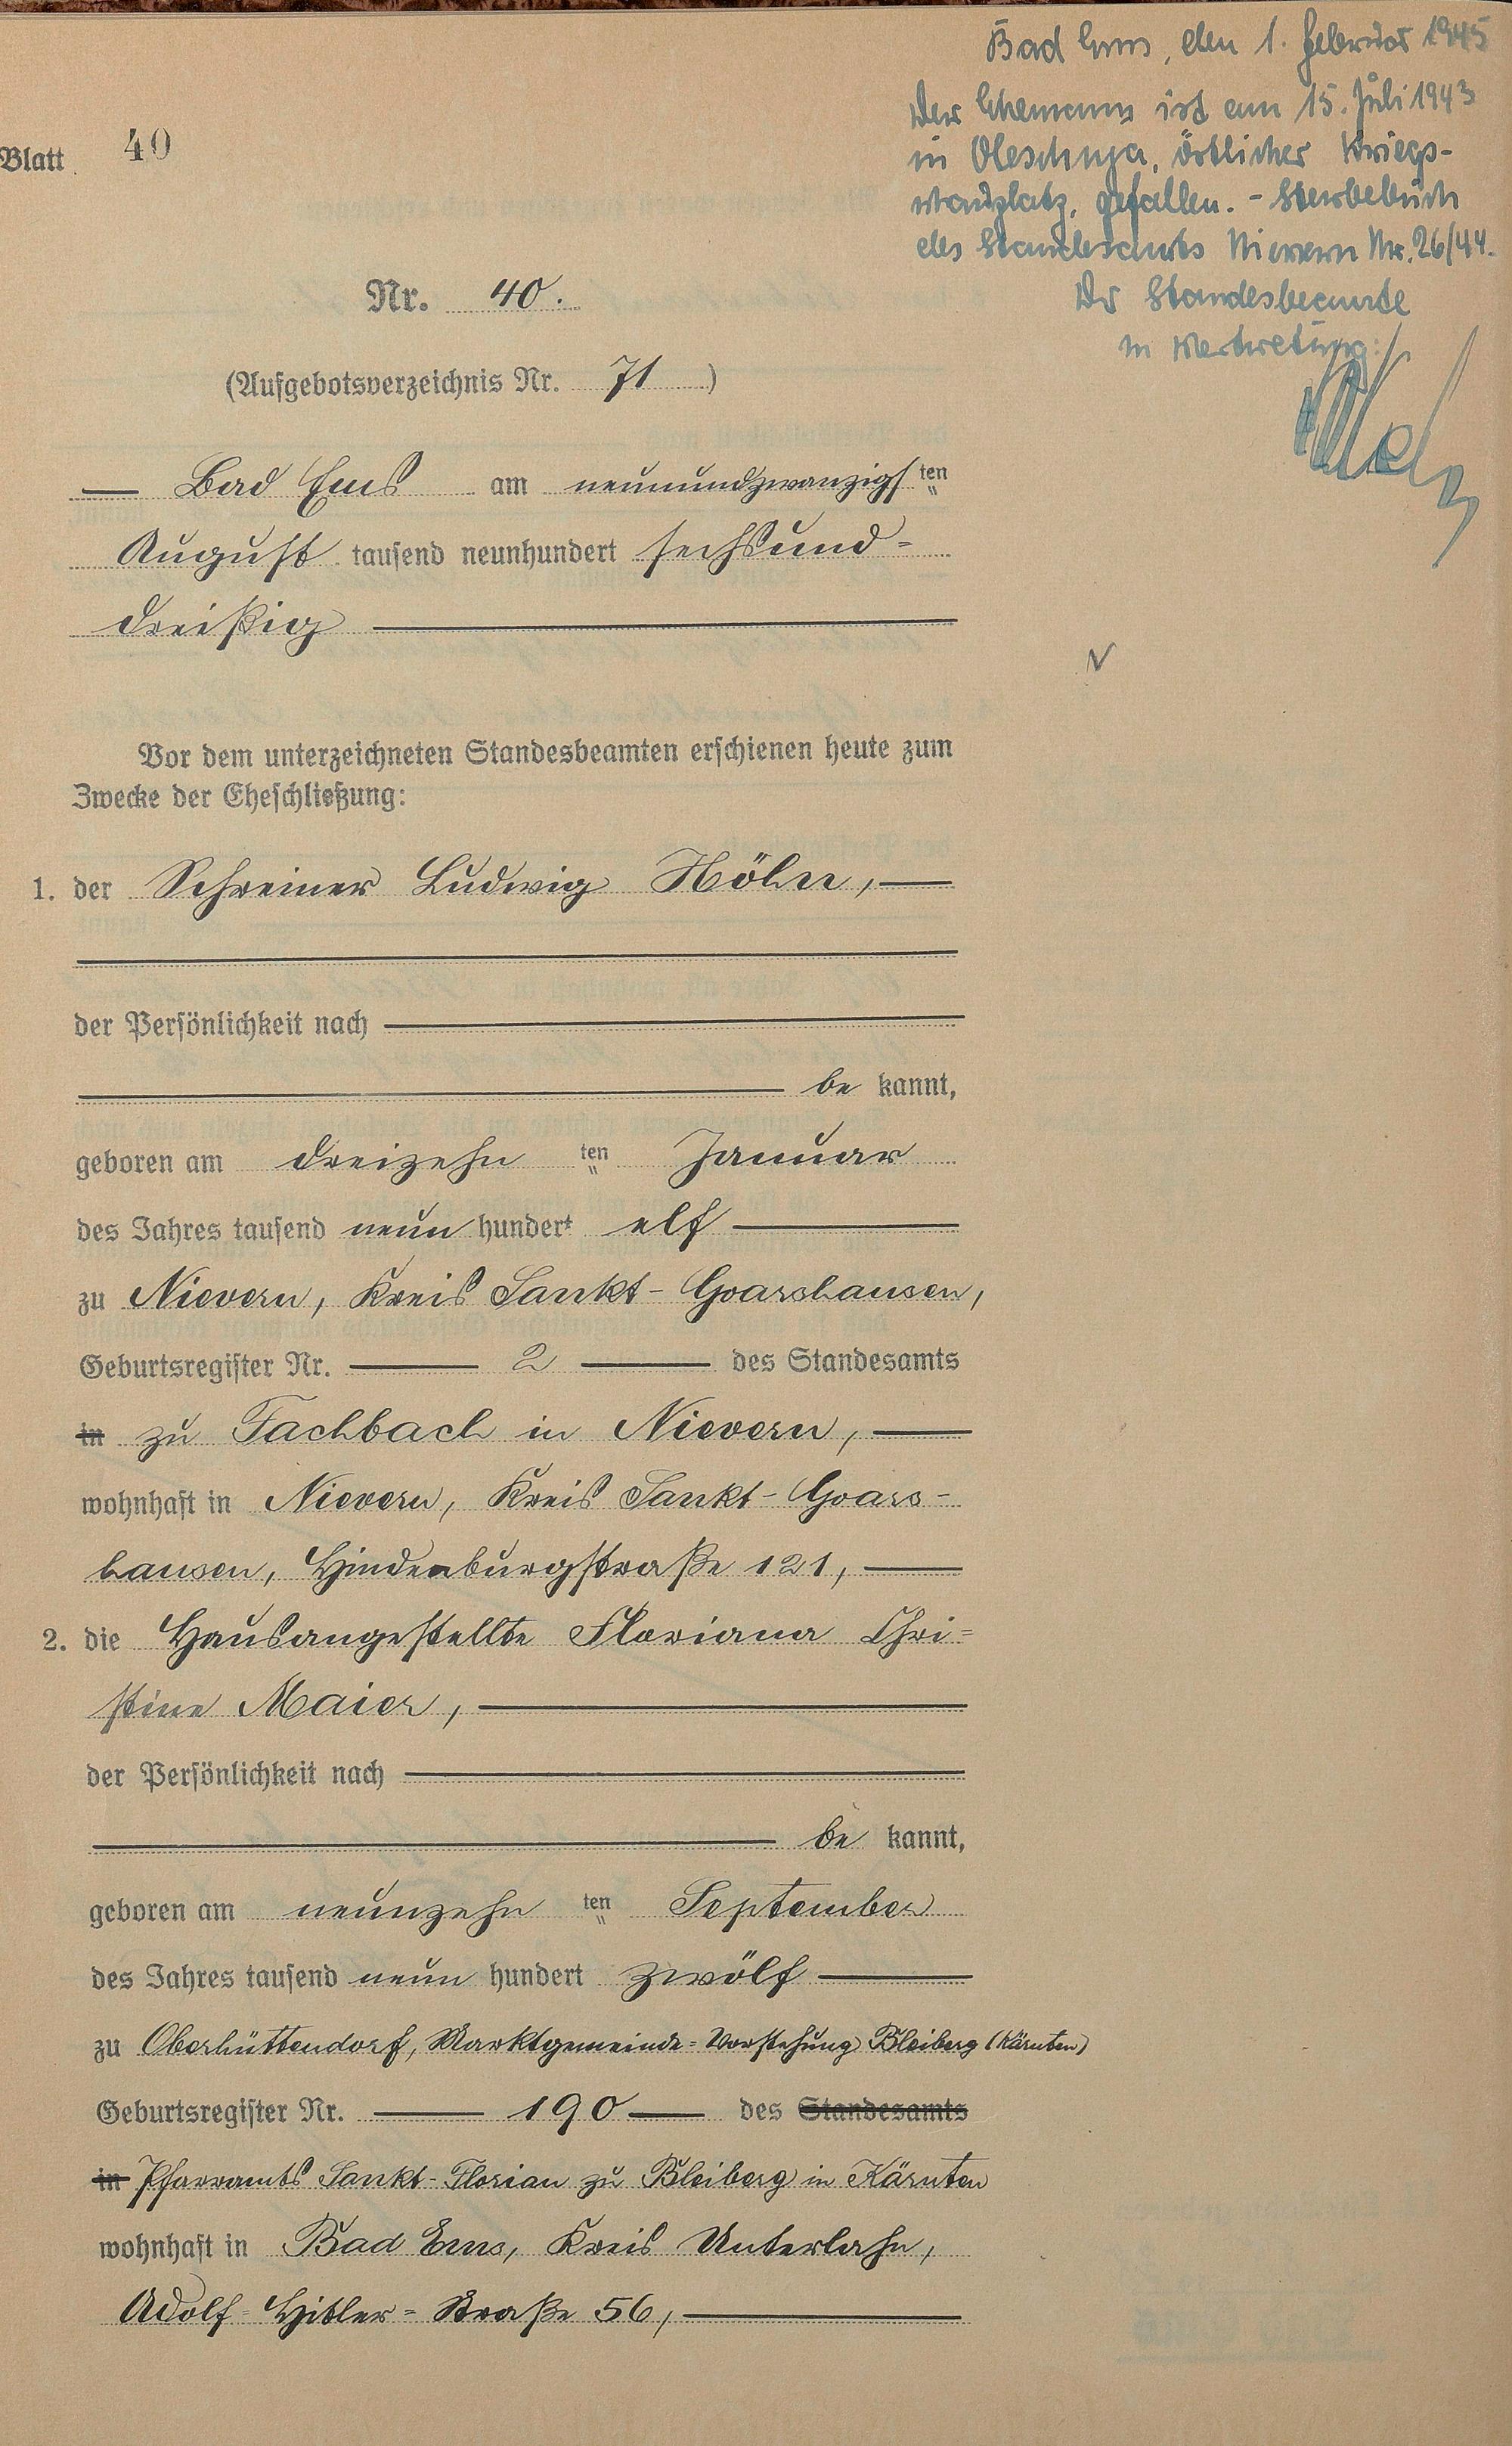 Bad Ems, den 1. Februar 1945
Der Ehemann ist am 15. Juli 1943
in Oleschnja, örtlicher Kriegs-
schauplatz, gefallen. - Sterbebuch
des Standesamts Nievern Nr. 26/44.
Der Standesbeamte
in Vertretung:
Blatt 40
Nr. 40.
(Aufgebotsverzeichnis Nr. 71)
Bad Ems am neunundzwanzigsten
August tausend neunhundert sechsund=
dreißig
Vor dem unterzeichneten Standesbeamten erschienen heute zum
Zwecke der Eheschließung:
1. der Schreiner Ludwig Höhn,
der Persönlichkeit nach
be kannt,
geboren am dreizehn ten Januar
des Jahres tausend neun hundert elf
zu Nievern, Kreis Sankt-Goarshausen,
Geburtsregister Nr. 2 des Standesamts
in zu Fachbach in Nievern,
wohnhaft in Nievern, Kreis Sankt-Goars-
hausen, Hindenburgstraße 121,
2. die Hausangestellte Floriana Chri=
stine Maier,
der Persönlichkeit nach
be kannt,
geboren am neunzehn ten September
des Jahres tausend neun hundert zwölf
zu Oberhüttendorf, Marktgemeinde=Vorstehung Bleiberg (Kärnten)
Geburtsregister Nr. 190 des Standesamts
in Pfarramts Sankt-Florian zu Bleiberg in Kärnten
wohnhaft in Bad Ems, Kreis Unterlahn,
Adolf=Hitler=Straße 56,